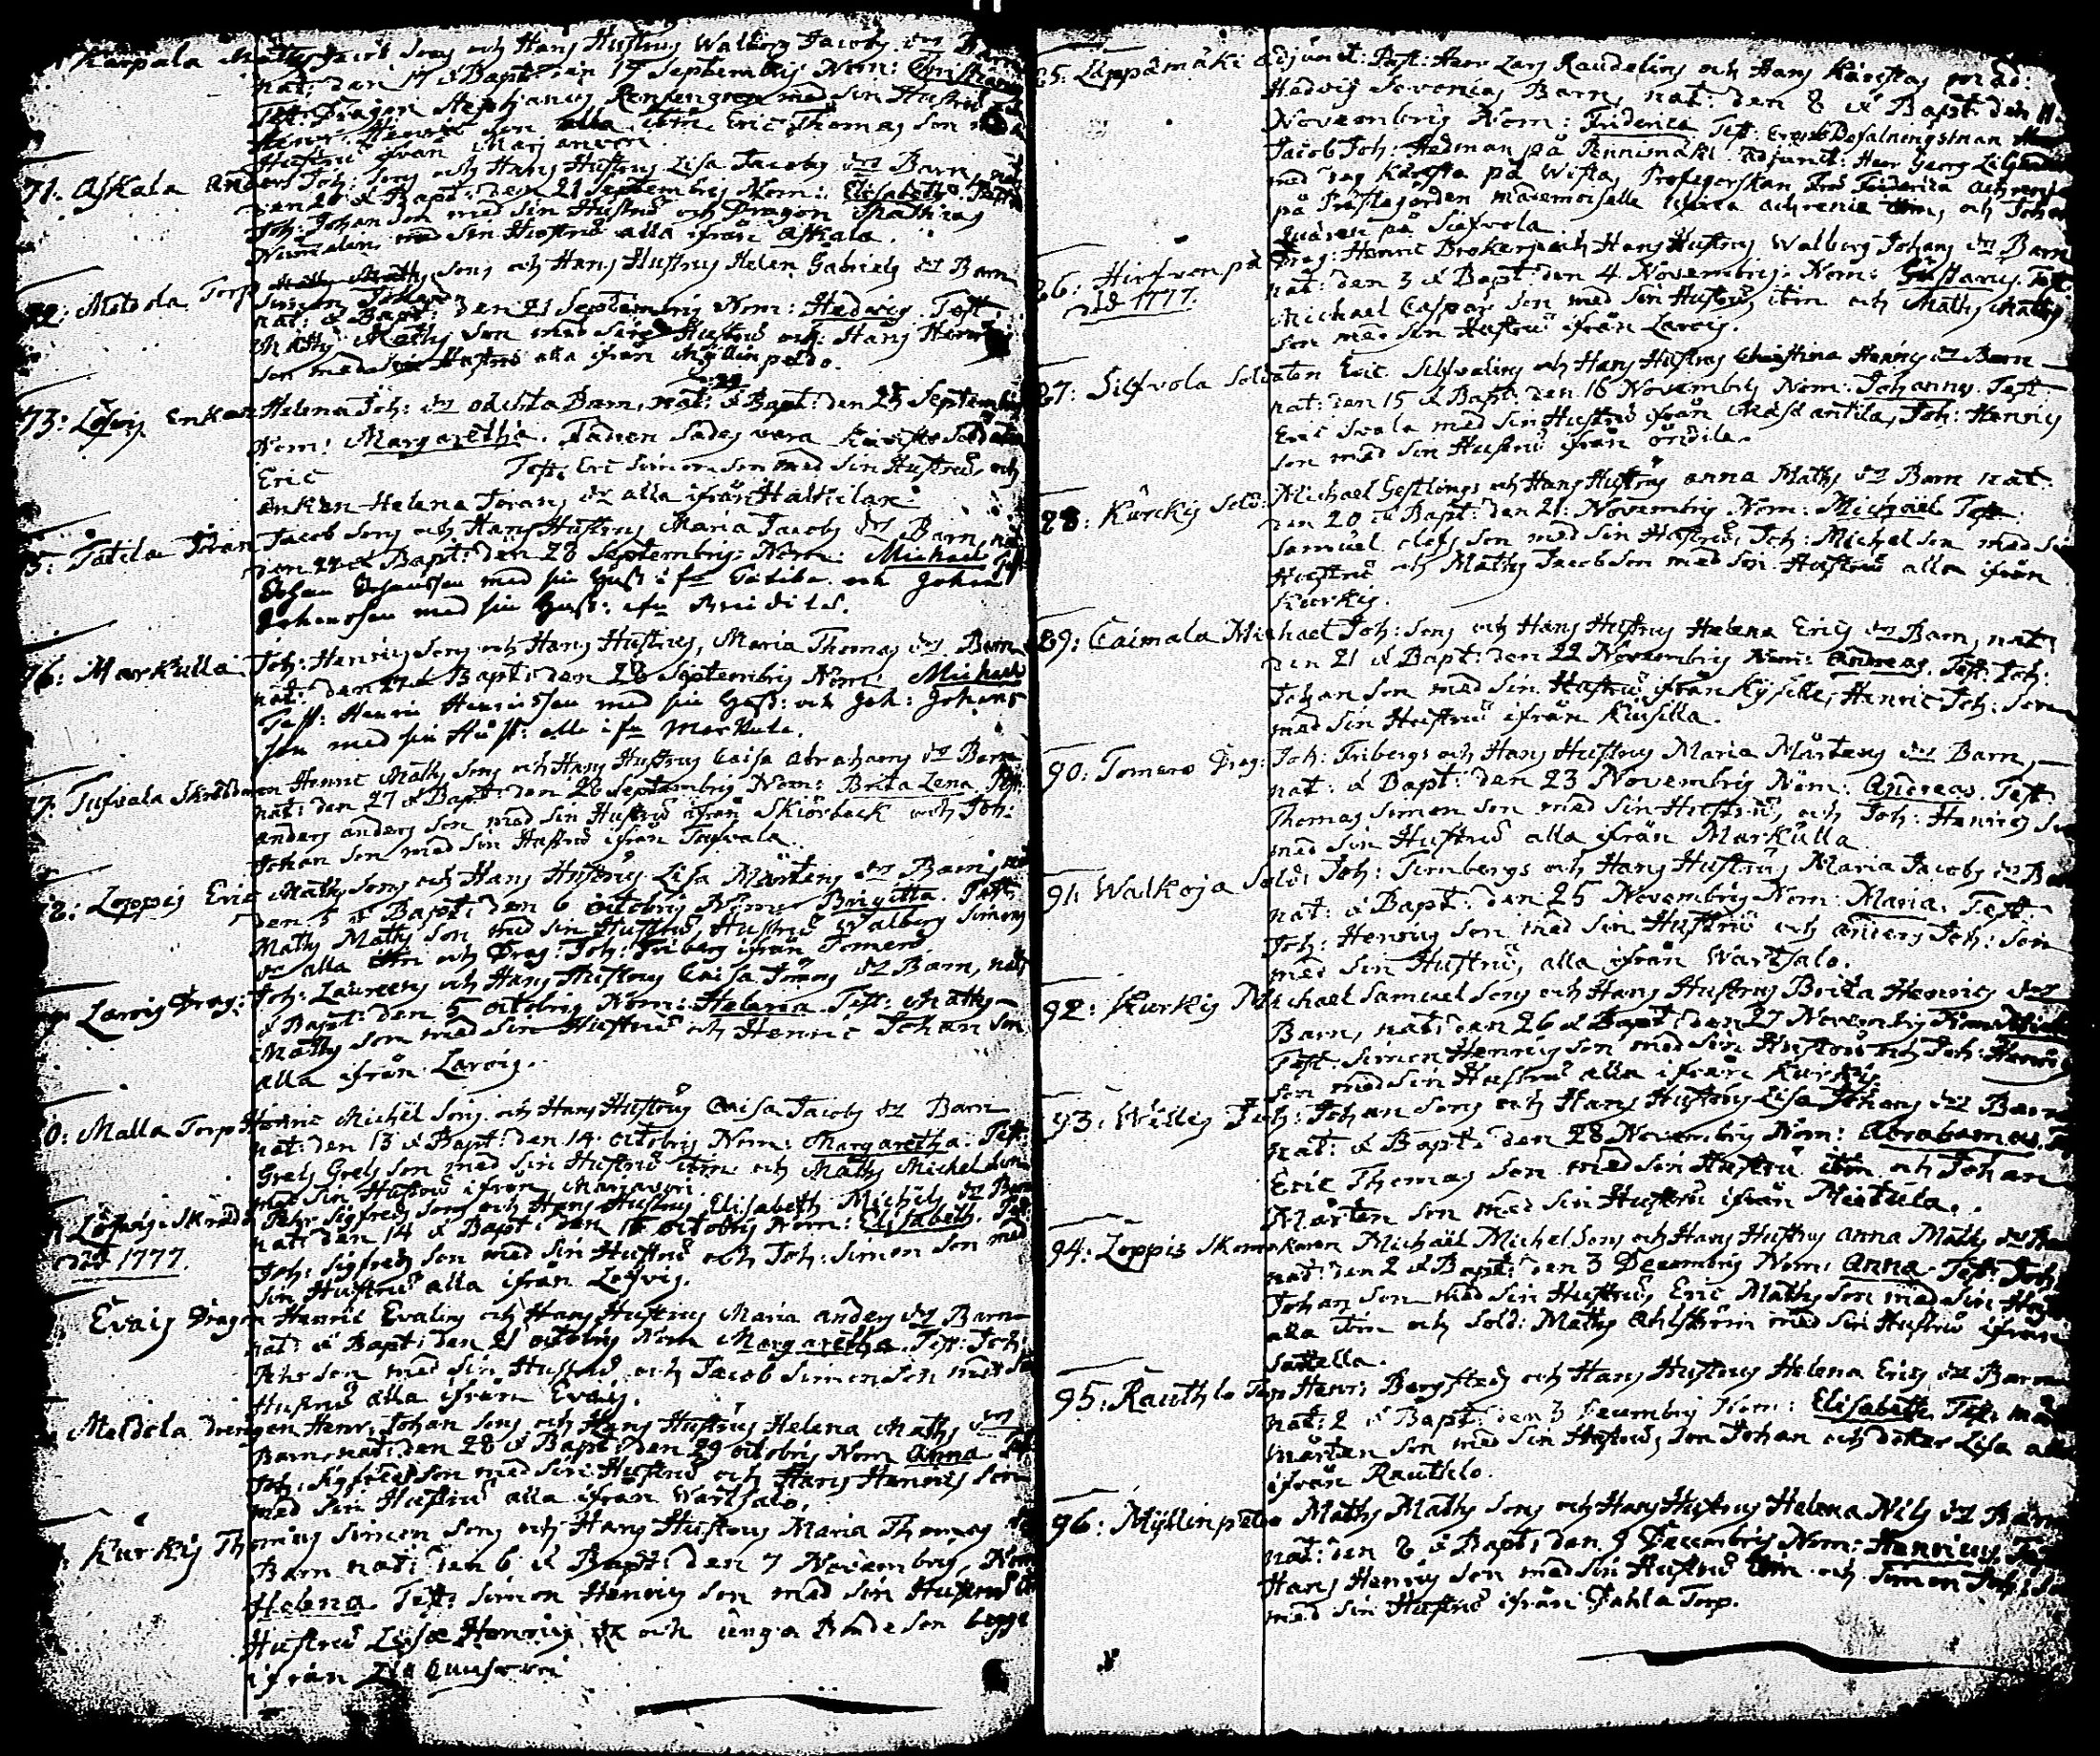 Karpala Matts Jacobs Sons och Hans Hustrus Walborg Jacobs dr Barn
nat: den 17 & Bapt: den 17 Septembris Nom: Christian
Test: Dragon Stephanus med Sin Hustru
Henric son alla ibm. Eric Thomas Son med
Hustru ifrån Marjanvori.
71. Askala Anders Joh: Sons och Hans Hustrus Lisa Jacobs dr Barn, nat
den 20 & Bapt: den 21 Septembris Nom: Elisabeth. Test:
Joh: Johan Son med Sin Hustru och Dragon Mathias
Nummelin med Sin Hustru alla ifrån Askala.
72: Metola Torp Sons och Hans Hustrus Helen Gabriels dr Barn
Simon Johan
nat: & Bapt: den 21 Septembris Nom: Hedwig. Test:
Matts Matts Son med Sin Hustru och Hans Henrics
Son med Sin Hustru alla ifrån Myllinpeldo.
73: Löfvis Enkan Helena Joh: dr odchta Barn, nat: & Bapt: den 23 Septembris
Nom: Margaretha. Fadren Sades vara Soldaten
Eric Test: Eric Simon Son med Sin Hustru, och
Enkan Helena Jöran, dr alla ifrån Halkilax
5: Tatila Jöran Jacob Sons och Hans Hustrus Maria Jacobs dr Barn, nat
den 22 & Bapt: den 28 Septembris: Nom: Michael Test
Johan Johansson med sin Hust: ifn Tätila och Johan
Johansson med sin Hust: ifn
76: Markulla Joh: Henrics Sons och Hans Hustrus, Maria Thomas dr Barn
nat: den 27 & Bapt: den 28 Septembris Nom: Michael
Test: Henric Henricsson med sin Hust: och Joh: Johans
son med sin Hust: alla ifn Markula.
77: Tufvala Skräddaren Henric Matts Sons och Hans Hustrus Caisa Abrahams dr Barn
nat: den 27 & Bapt: den 28 Septembris Nom: Brita Lena Test:
Anders Anders Son med Sin Hustru ifrån Skiörback och Joh:
Johan Son med Sin Hustru ifrån Tufvala.
8: Loppis Eric Matts Sons och Hans Hustrus Lisa Mårtens dr Barn, nat
den 5 & Bapt: den 6 Octobris Nom: Brigitta. Test:
Matts Matts Son med Sin Hustru, Hustru Walborg Simons
dr alla ibm och Drag: Joh: Friberg ifrån Tomero
Larvis Drag: Joh: Laureens och Hans Hustrus Caisa Jörans dr Barn, nat
& Bapt: den 5 Octobris Nom: Helena. Test: Matts
Matts Son med Sin Hustru och Henric Johan Son
alla ifrån Larvis.
0: Malla Torp Henric Michel Sons och Hans Hustrus Caisa Jacobs dr Barn
nat: den 13 & Bapt: den 14 Octobris Nom: Margaretha. Test:
Grels Grels Son med Sin Hustru ibm och Matts Michel Son
med Sin Hustru ifrån Marjavori.
Löfvis Skrädd: Pehr Sigfreds Sons och Hans Hustrus Elisabeth Michels dr Barn
död 1777. nat: den 14 & Bapt: den 15 Octobris Nom: Elisabeth. Test:
Joh: Sigfreds Son med Sin Hustru och Joh: Simon Son med
Sin Hustru alla ifrån Löfvis.
Evais Dragon Henric Evalins och Hans Hustrus Maria Anders dr Barn
nat: & Bapt: den 21 Octobris Nom Margaretha. Test: Joh:
Pehrson med Sin Hustru, och Jacob Simon Son med Sin
Hustru alla ifrån Evais.
Metola Drengen Henr: Johan Sons och Hans Hustrus Helena Matts dr
Barn, nat: den 28 & Bapt: den 29 Octobris Nom Anna Test:
Joh: Sigfreds Son med Sin Hustru och Hans Henrics Son
med Sin Hustru alla ifrån Wartsalo.
Kurkis Thomas Simon Sons och Hans Hustrus Maria Thomas dr
Barn nat: den 6 & Bapt: den 7 Novembris, Nom
Helena. Test: Simon Henrics Son med Sin Hustru
Hustru Lisa Henrics dr och unga Bonde Son begge
ifrån
85. Leppämäki Adjunct: Past: Herr Lars Raudelins och Hans Kärestas mad:
Hedvig Sevonias Barn, nat: den 8 & Bapt: den
Novembris Nom: Fridrica Test: Befalningsman Herr
Jacob Joh: Hedman på Pennimäki. Adjunct: Herr Georg
med dess Käresta på Wista, Professorskan Fru Fridrica Achrenia
på Prästegården mademoiselle Achrenia ibm, och Johan
Juslen på Siefvola.
86: Hirfvonpä Drag: Henric Brokers och Hans Hustrus Walborg Johans dr Barn
död 1777. nat: den 3 & Bapt: den 4 Novembris. Nom: Gustavus. Test:
Michael Caspar Son med Sin Hustru, ibm och Matts Matts
Son med Sin Hustru ifrån Larvis.
87: Silfvola Soldaten Eric Silfvalins och Hans Hustrus Christina Henrics dr Barn
nat: den 15 & Bapt: den 16 Novembris Nom: Johannes. Test:
Eric Svala med Sin Hustru ifrån Mäsäantila, Joh: Henrics
Son med Sin Hustru ifrån Ördila.
88: Kurckis Sold: Michael Gestlings och Hans Hustrus Anna Matts dr Barn nat:
den 20 & Bapt: den 21 Novembris Nom: Michael Test:
Samuel Olofs Son med Sin Hustru, Joh: Michel Son med Sin
Hustru och Matts Jacob Son med Sin Hustru alla ifrån
Kurkis.
89: Caimala Michael Joh: Sons och Hans Hustrus Helena Erics dr Barn, nat:
den 21 & Bapt: den 22 Novembris Nom: Andreas. Test: Joh:
Johan Son med Sin Hustru ifrån Kysille, Henric Joh: Son
med Sin Hustru ifrån Kiusilla.
90: Tomero Drag: Joh: Fribergs och Hans Hustrus Maria Mårtens dr Barn,
nat: & Bapt: den 23 Novembris Nom: Andreas. Test:
Thomas Simon Son med Sin Hustru, och Joh: Henrics Son
med Sin Hustru alla ifrån Markulla.
91: Walkoja Sold: Joh: Turnbergs och Hans Hustrus Maria Jacobs dr Barn
nat: & Bapt: den 25 Novembris Nom: Maria. Test:
Joh: Henrics Son med Sin Hustru och Anders Joh: Son
med Sin Hustru, alla ifrån Wartsalo.
92: Kurkis Michael Samuel Sons och Hans Hustrus Brita Henrics dr
Barn, nat: den 26 & Bapt: den 27 Novembris Nom
Test: Simon Henrics Son med Sin Hustru och Joh: Henrics
Son med Sin Hustru alla ifrån Kurkis.
93: Willis Joh: Johan Sons och Hans Hustrus Lisa Johans dr Barn
nat: & Bapt: den 28 Novembris Nom: Abrahamus.
Eric Thomas Son med Sin Hustru ibm och Johan
Mårten Son med Sin Hustru ifrån Mietula.
94: Loppis Skomakaren Michael Michel Sons och Hans Hustrus Anna Matts dr Barn
nat: den 2 & Bapt: den 3 Decembris Nom: Anna. Test: Joh:
Johan Son med Sin Hustru, Eric Matts Son med Sin Hust
alla ibm och Sold: Matts Ahlström med Sin Hustru ifrån
Sattella.
95: Rauthlo Torp Henric Bergsteds och Hans Hustrus Helena Erics dr Barn
nat: 2 & Bapt: den 3 Decembris Nom: Elisabeth. Test: Mårt
Mårten Son med Sin Hustru, Son Johan och doter Lisa alla
ifrån Rauthlo.
96: Myllinpeldo Matts Matts Sons och Hans Hustrus Helena Nils dr Barn
nat: den 8 & Bapt: den 9 Decembris Nom: Henricus.
Hans Henrics Son med Sin Hustru ibm och Simon Joh: Son
med Sin Hustru ifrån Pahla Torp.